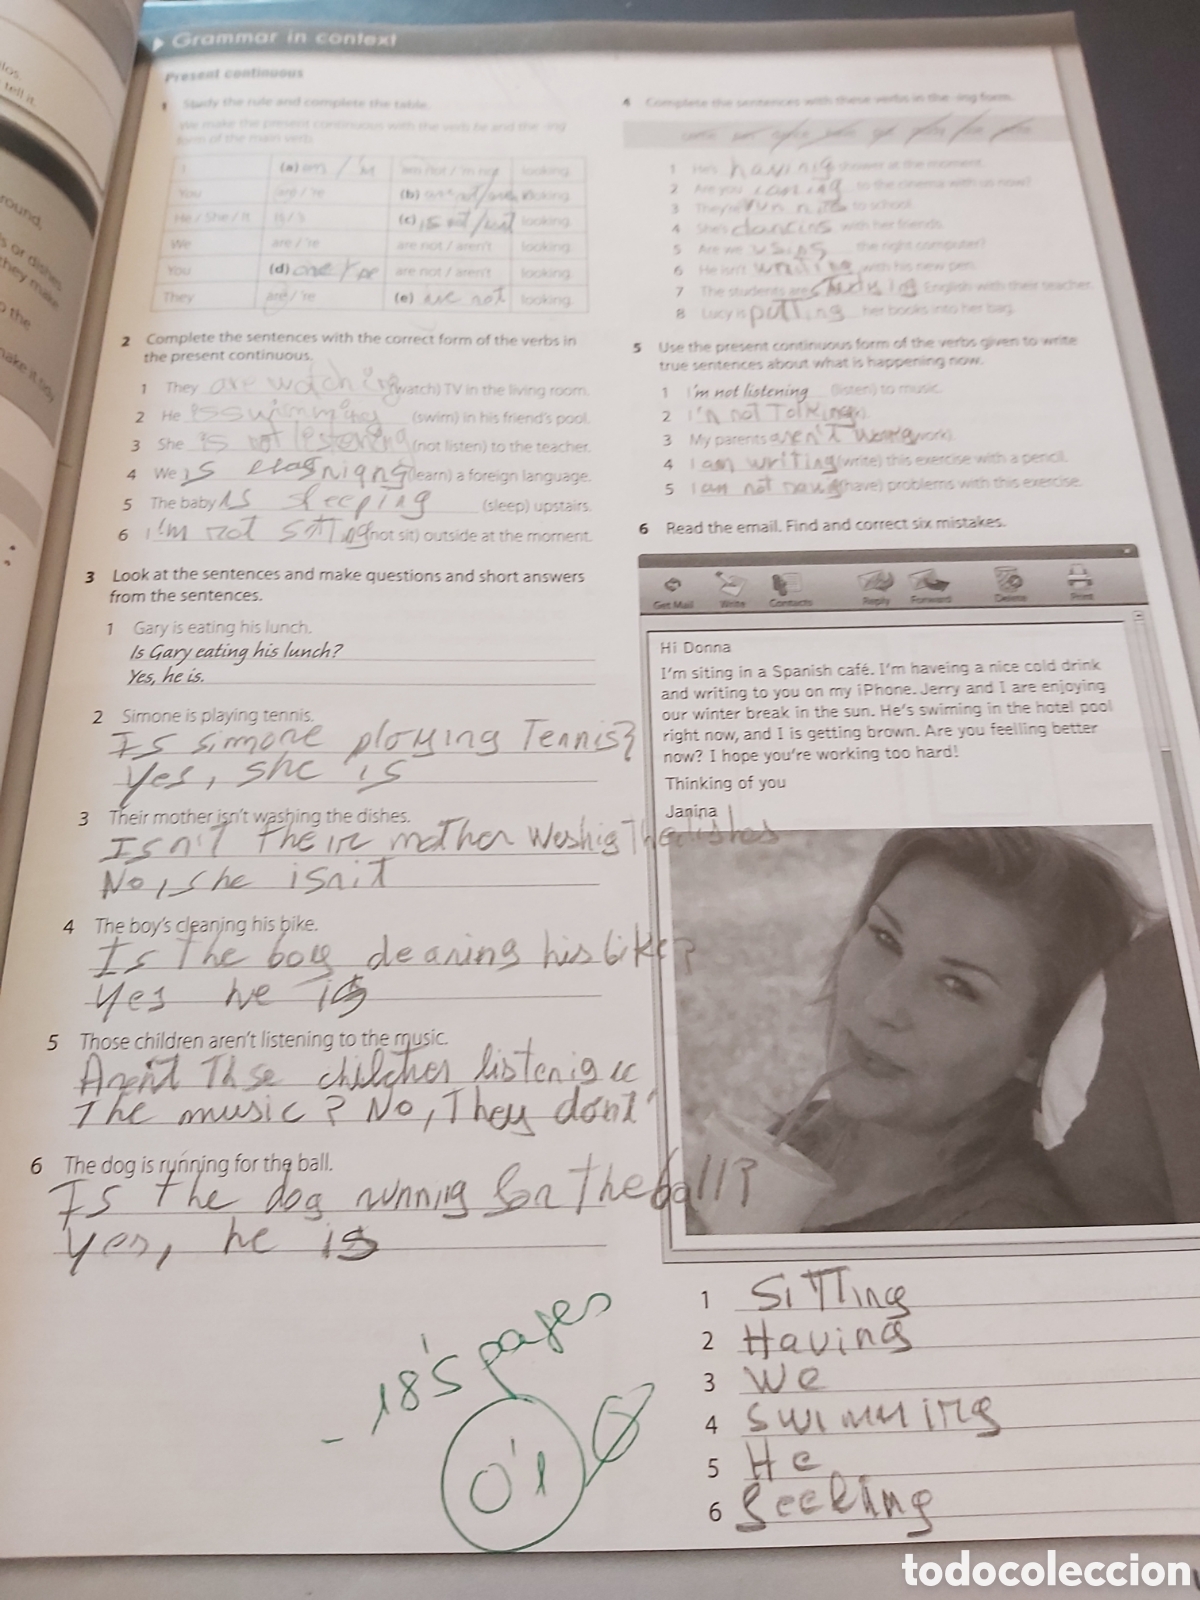 Grammar in context
Present continuous
1 Study the rule and complete the table.
We make the present continuous with the verb be and the -ing
form of the main verb.
I (a) am / 'm am not / 'm not looking.
You are / 're (b) looking.
He / She / It is / 's (c) is not / looking.
We are / 're are not / aren't looking.
You (d) are / 're are not / aren't looking.
They are / 're (e) not looking.
2 Complete the sentences with the correct form of the verbs in
the present continuous.
1 They are watching (watch) TV in the living room.
2 He (swim) in his friend's pool.
3 She is not listening (not listen) to the teacher.
4 We is (learn) a foreign language.
5 The baby is sleeping (sleep) upstairs.
6 I'm not sitting (not sit) outside at the moment.
3 Look at the sentences and make questions and short answers
from the sentences.
1 Gary is eating his lunch.
Is Gary eating his lunch?
Yes, he is.
2 Simone is playing tennis.
Is simone playing Tennis?
Yes, she is
3 Their mother isn't washing the dishes.
Isn't their mother washig The dishes
No, she isn't
4 The boy's cleaning his bike.
Is the boy cleaning his bike?
Yes he is
5 Those children aren't listening to the music.
Aren't listenig
The music? No, They don't
6 The dog is running for the ball.
Is the dog running for the ball?
Yes, he is
-18'5 pages
0'1
4 Complete the sentences with these verbs in the -ing form.
1 He's having shower at the moment.
2 Are you to the cinema with us now?
3 They're to school.
4 She's dancing with her friends.
5 Are we using the right computer?
6 He isn't writing with his new pen.
7 The students are studying English with their teacher.
8 Lucy is putting her books into her bag.
5 Use the present continuous form of the verbs given to write
true sentences about what is happening now.
1 I'm not listening (listen) to music.
2 I'm not Talking
3 My parents aren't (work).
4 I am writing (write) this exercise with a pencil.
5 I am not (have) problems with this exercise.
6 Read the email. Find and correct six mistakes.
Get Mail Write Contacts Reply Forward Delete Print
Hi Donna
I'm siting in a Spanish café. I'm haveing a nice cold drink
and writing to you on my iPhone. Jerry and I are enjoying
our winter break in the sun. He's swiming in the hotel pool
right now, and I is getting brown. Are you feelling better
now? I hope you're working too hard!
Thinking of you
Janina
1 SiTTing
2 Having
3 We
4 swimming
5 He
6
todocoleccion